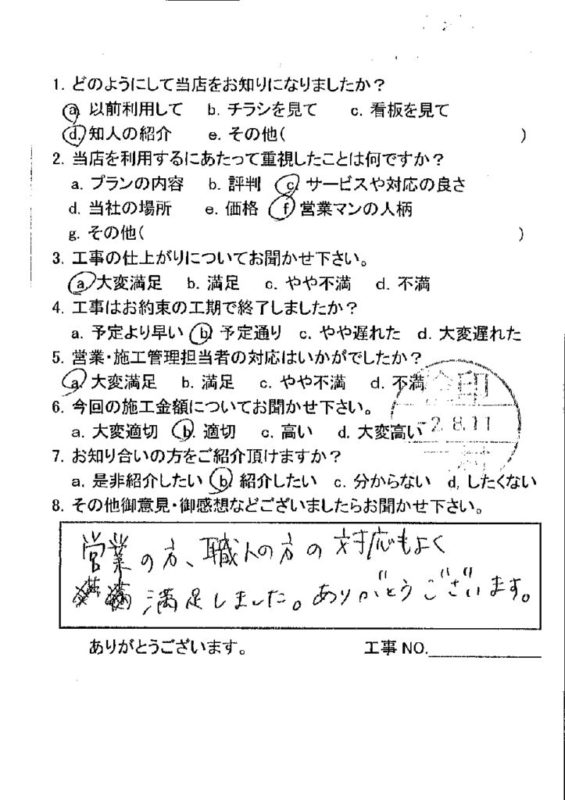 1. どのようにして当店をお知りになりましたか？
a. 以前利用して b. チラシを見て c. 看板を見て
d. 知人の紹介 e. その他( )
2. 当店を利用するにあたって重視したことは何ですか？
a. プランの内容 b. 評判 c. サービスや対応の良さ
d. 当社の場所 e. 価格 f. 営業マンの人柄
g. その他( )
3. 工事の仕上がりについてお聞かせ下さい。
a. 大変満足 b. 満足 c. やや不満 d. 不満
4. 工事はお約束の工期で終了しましたか？
a. 予定より早い b. 予定通り c. やや遅れた d. 大変遅れた
5. 営業・施工管理担当者の対応はいかがでしたか？
a. 大変満足 b. 満足 c. やや不満 d. 不満
6. 今回の施工金額についてお聞かせ下さい。
a. 大変適切 b. 適切 c. 高い d. 大変高い
2.8.11
7. お知り合いの方をご紹介頂けますか？
a. 是非紹介したい b. 紹介したい c. 分からない d. したくない
8. その他御意見・御感想などございましたらお聞かせ下さい。
営業の方、職人の方の対応もよく
満足しました。ありがとうございます。
ありがとうございます。 工事 NO.